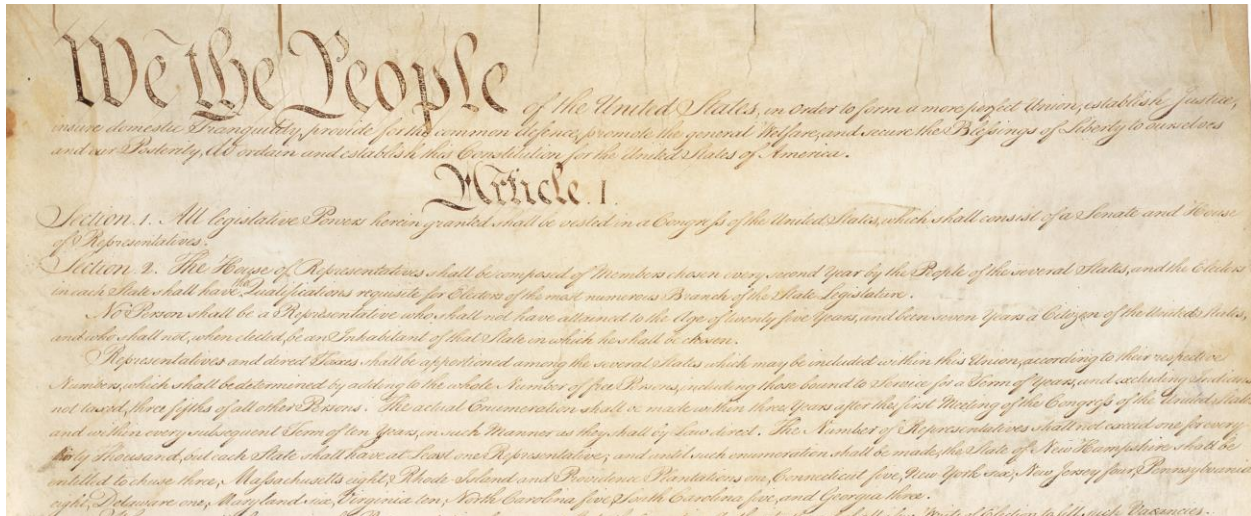 We the People of the United States, in Order to form a more perfect Union, establish Justice,
insure domestic Tranquility, provide for the common defence, promote the general Welfare, and secure the Blessings of Liberty to ourselves
and our Posterity, do ordain and establish this Constitution for the United States of America.
Article. I.
Section. 1. All legislative Powers herein granted shall be vested in a Congress of the United States, which shall consist of a Senate and House
of Representatives.
Section. 2. The House of Representatives shall be composed of Members chosen every second Year by the People of the several States, and the Electors
in each State shall have the Qualifications requisite for Electors of the most numerous Branch of the State Legislature.
No Person shall be a Representative who shall not have attained to the Age of twenty five Years, and been seven Years a Citizen of the United States,
and who shall not, when elected, be an Inhabitant of that State in which he shall be chosen.
Representatives and direct Taxes shall be apportioned among the several States which may be included within this Union, according to their respective
Numbers, which shall be determined by adding to the whole Number of free Persons, including those bound to Service for a Term of Years, and excluding Indians
not taxed, three fifths of all other Persons. The actual Enumeration shall be made within three Years after the first Meeting of the Congress of the United States,
and within every subsequent Term of ten Years, in such Manner as they shall by Law direct. The Number of Representatives shall not exceed one for every
thirty Thousand, but each State shall have at Least one Representative; and until such enumeration shall be made, the State of New Hampshire shall be
entitled to chuse three, Massachusetts eight, Rhode-Island and Providence Plantations one, Connecticut five, New-York six, New Jersey four, Pennsylvania
eight, Delaware one, Maryland six, Virginia ten, North Carolina five, South Carolina five, and Georgia three.
Writs of Election to fill such Vacancies.